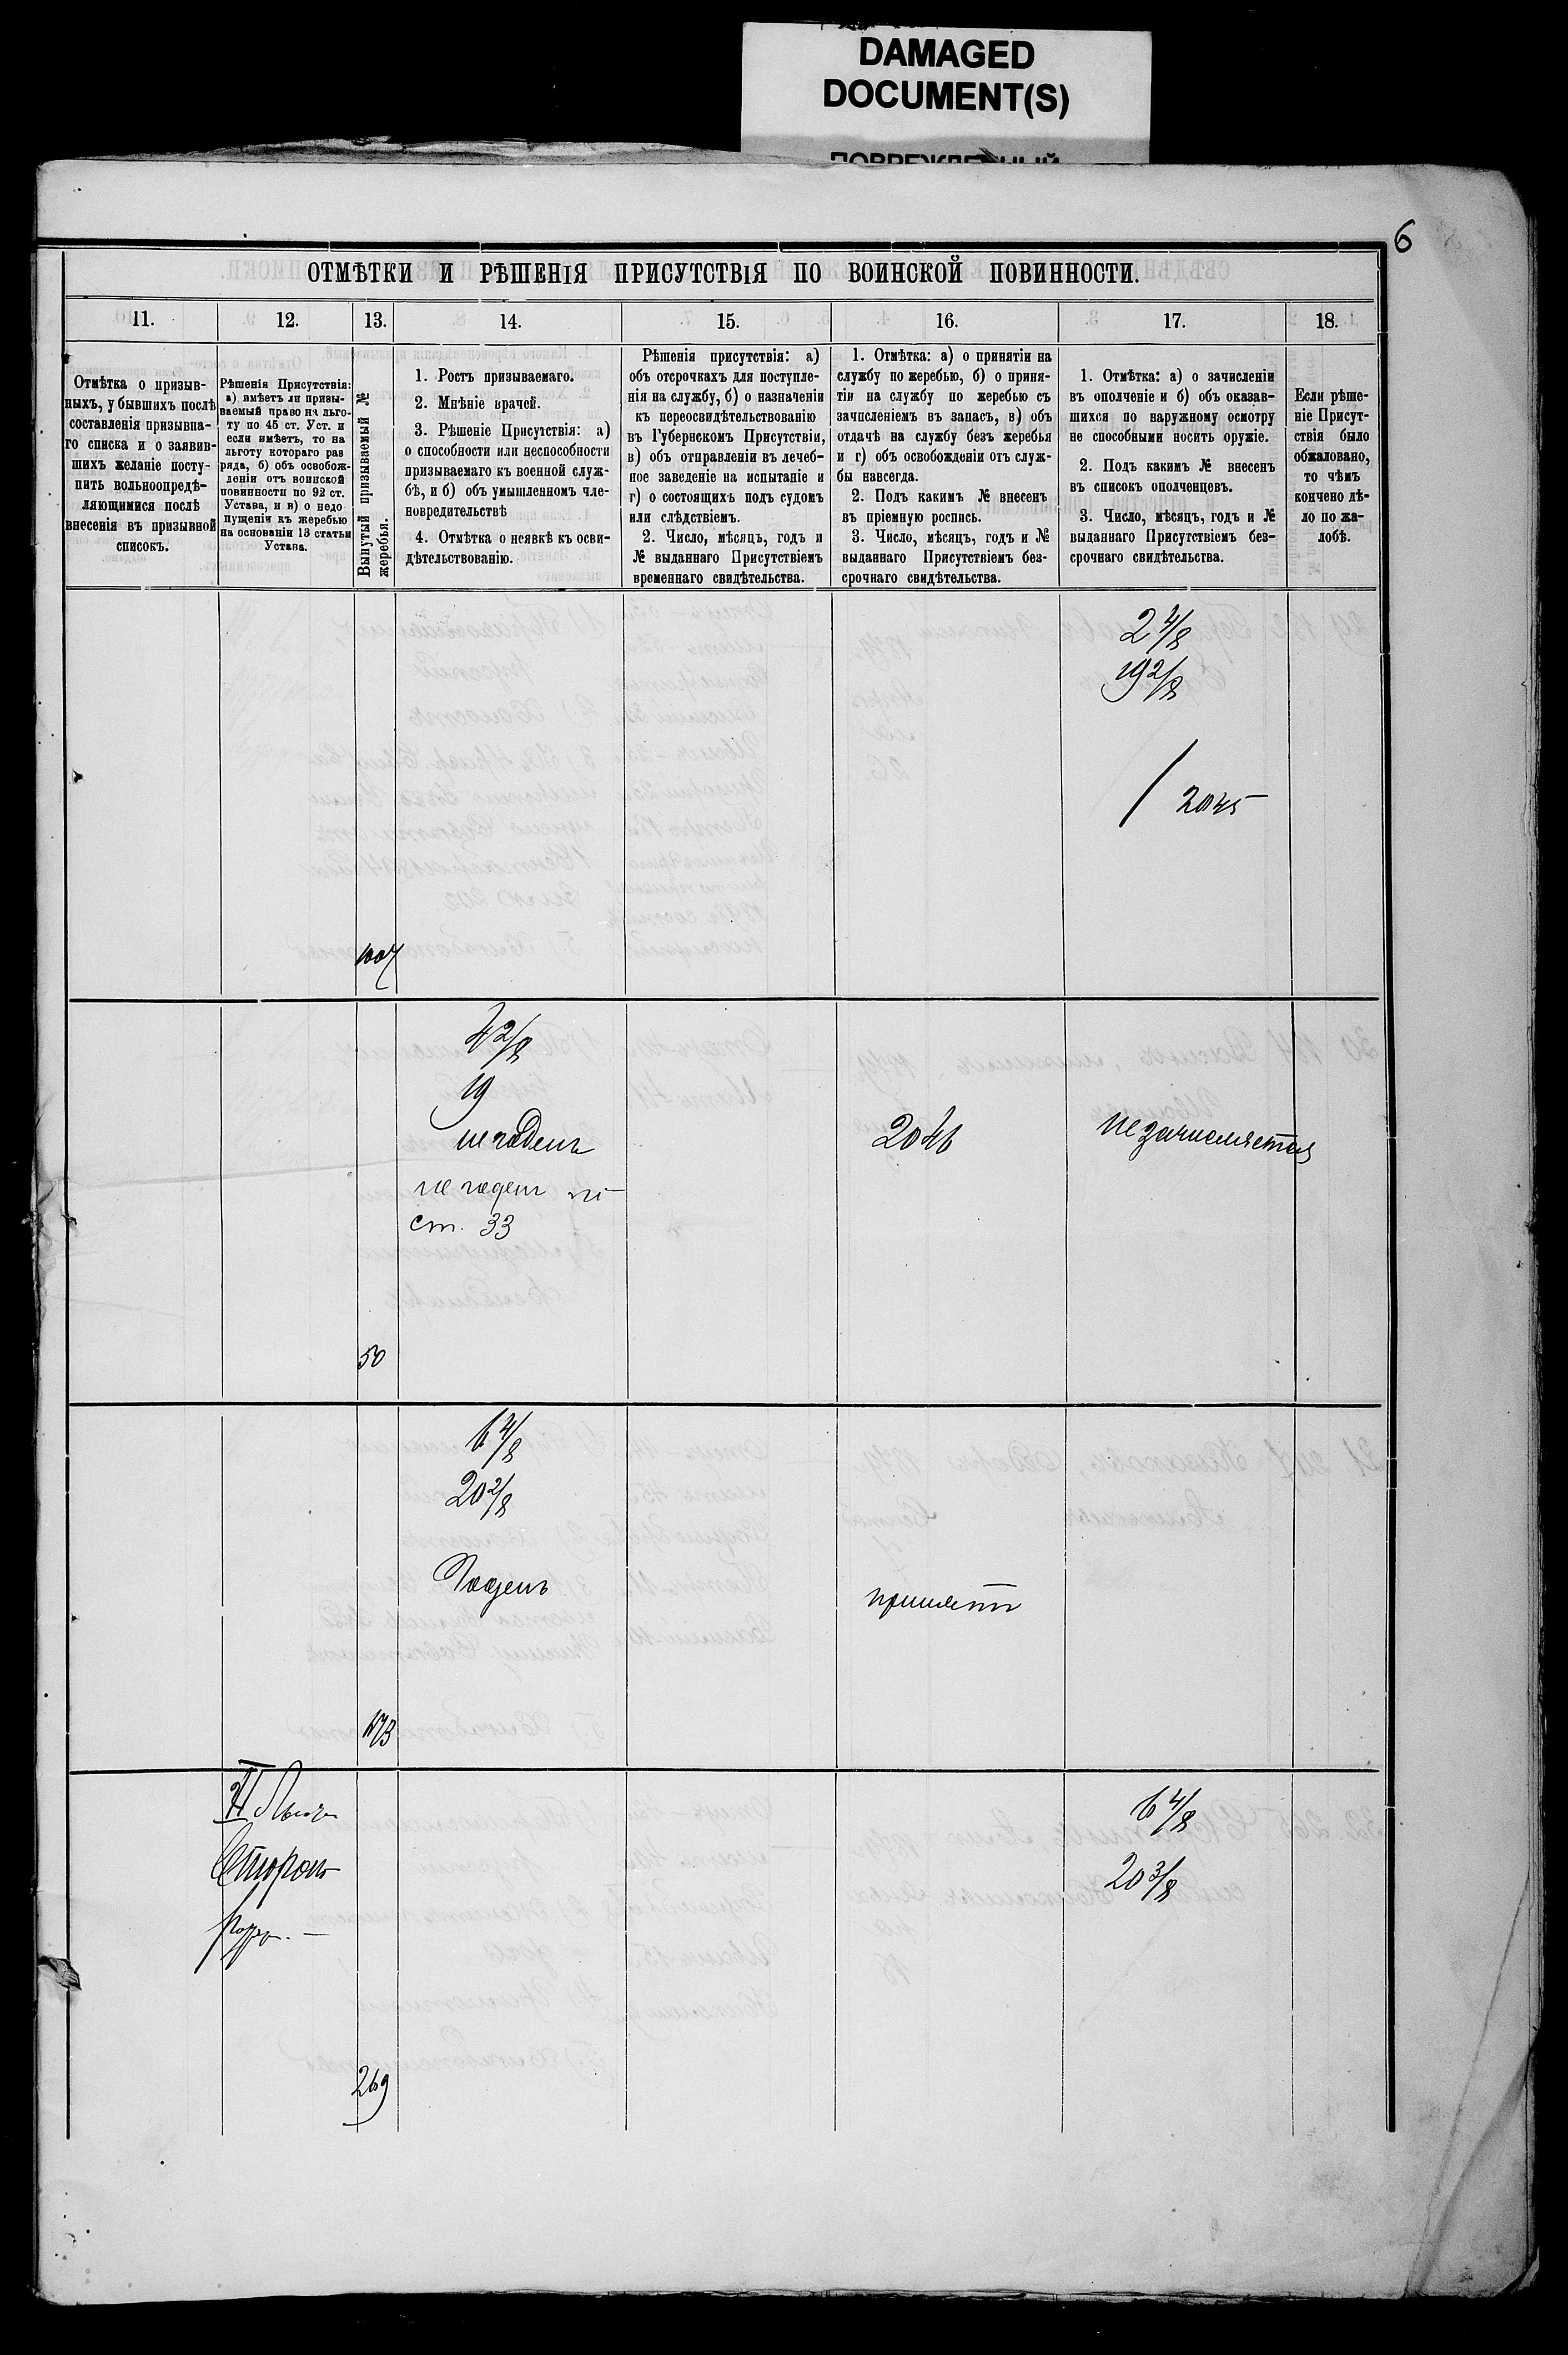 DAMAGED
DOCUMENT(S)
ПОВРЕЖДЕННЫЙ
6
ОТМѢТКИ И РѢШЕНІЯ ПРИСУТСТВІЯ ПО ВОИНСКОЙ ПОВИННОСТИ.
11.
12.
13.
14.
15.
16.
17.
18.
Отмѣтка о призыв-
ныхъ, у бывшихъ послѣ
составленія призывна-
го списка и о заявив-
шихъ желаніе посту-
пить вольноопредѣ-
ляющимися послѣ
внесенія въ призывной
списокъ.
Рѣшенія Присутствія:
а) имѣетъ ли призы-
ваемый право на льго-
ту по 45 ст. Уст. и
если имѣетъ, то на
льготу котораго раз
ряда, б) объ освобож-
деніи отъ воинской
повинности по 92 ст.
Устава, и в) о недо
пущеніи къ жеребью
на основаніи 13 статьи
Устава.
Вынутый призываемый №
жеребья.
1. Ростъ призываемаго.
2. Мнѣніе врачей.
3. Рѣшеніе Присутствія: а)
о способности или неспособности
призываемаго къ военной служ-
бѣ, и б) объ умышленномъ чле-
новредительствѣ
4. Отмѣтка о неявкѣ къ осви-
дѣтельствованію.
Рѣшенія присутствія: а)
объ отсрочкахъ для поступле-
нія на службу, б) о назначеніи
къ переосвидѣтельствованію
въ Губернскомъ Присутствіи,
в) объ отправленіи въ лечеб-
ное заведеніе на испытаніе и
г) о состоящихъ подъ судомъ
или слѣдствіемъ.
2. Число, мѣсяцъ, годъ и
№ выданнаго Присутствіемъ
временнаго свидѣтельства.
1. Отмѣтка: а) о принятіи на
службу по жеребью, б) о приня-
тіи на службу по жеребью съ
зачисленіемъ въ запасъ, в) объ
отдачѣ на службу безъ жеребья
и г) объ освобожденіи отъ служ-
бы навсегда.
2. Подъ какимъ № внесенъ
въ пріемную роспись.
3. Число, мѣсяцъ, годъ и №
выданнаго Присутствіемъ без-
срочнаго свидѣтельства.
1. Отмѣтка: а) о зачисленіи
въ ополченіе и б) объ оказав-
шихся по наружному осмотру
не способными носить оружіе.
2. Подъ какимъ № внесенъ
въ списокъ ополченцевъ.
3. Число, мѣсяцъ, годъ и №
выданнаго Присутствіемъ без-
срочнаго свидѣтельства.
Если рѣше-
ніе Присут-
ствія было
обжаловано,
то чѣмъ
кончено дѣ-
ло по жа-
лобѣ.
2 4/8
19 2/8
/ 2045
1007
4 2/8
19
не годенъ
не годен по
ст. 33
2046
не зачисляется
50
6 4/8
20 2/8
Годенъ
принятъ
173
6 4/8
20 3/8
269